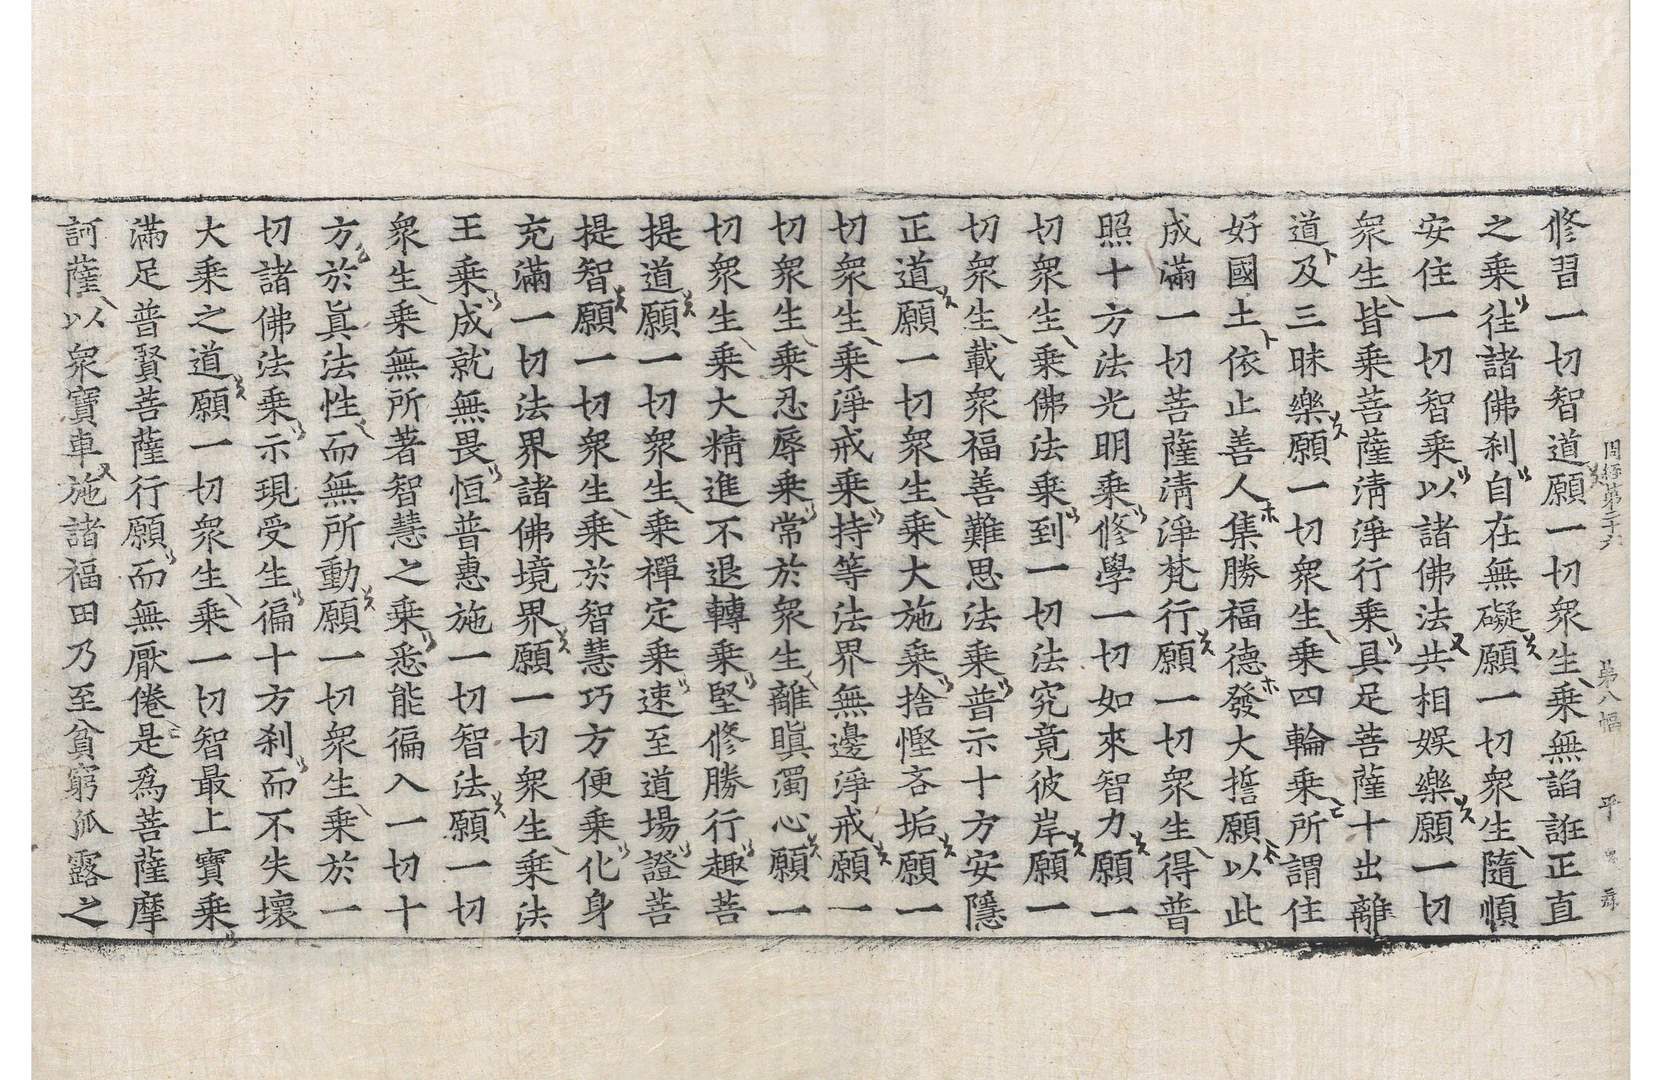 周經第二十六 第八幅 平
修習一切智道願一切衆生乘無諂誑正直
之乘往諸佛刹自在無礙願一切衆生隨順
安住一切智乘以諸佛法共相娛樂願一切
衆生皆乘菩薩淸淨行乘具足菩薩十出離
道及三昧樂願一切衆生乘四輪乘所謂住
好國土依止善人集勝福德發大誓願以此
成滿一切菩薩淸淨梵行願一切衆生得普
照十方法光明乘修學一切如來智力願一
切衆生乘佛法乘到一切法究竟彼岸願一
切衆生載衆福善難思法乘普示十方安隱
正道願一切衆生乘大施乘捨慳吝垢願一
切衆生乘淨戒乘持等法界無邊淨戒願一
切衆生乘忍辱乘常於衆生離瞋濁心願一
切衆生乘大精進不退轉乘堅修勝行趣菩
提道願一切衆生乘禪定乘速至道場證菩
提智願一切衆生乘於智慧巧方便乘化身
充滿一切法界諸佛境界願一切衆生乘法
王乘成就無畏恒普惠施一切智法願一切
衆生乘無所著智慧之乘悉能徧入一切十
方於眞法性而無所動願一切衆生乘於一
切諸佛法乘示現受生徧十方刹而不失壞
大乘之道願一切衆生乘一切智最上寶乘
滿足普賢菩薩行願而無厭倦是爲菩薩摩
訶薩以衆寶車施諸福田乃至貧窮孤露之